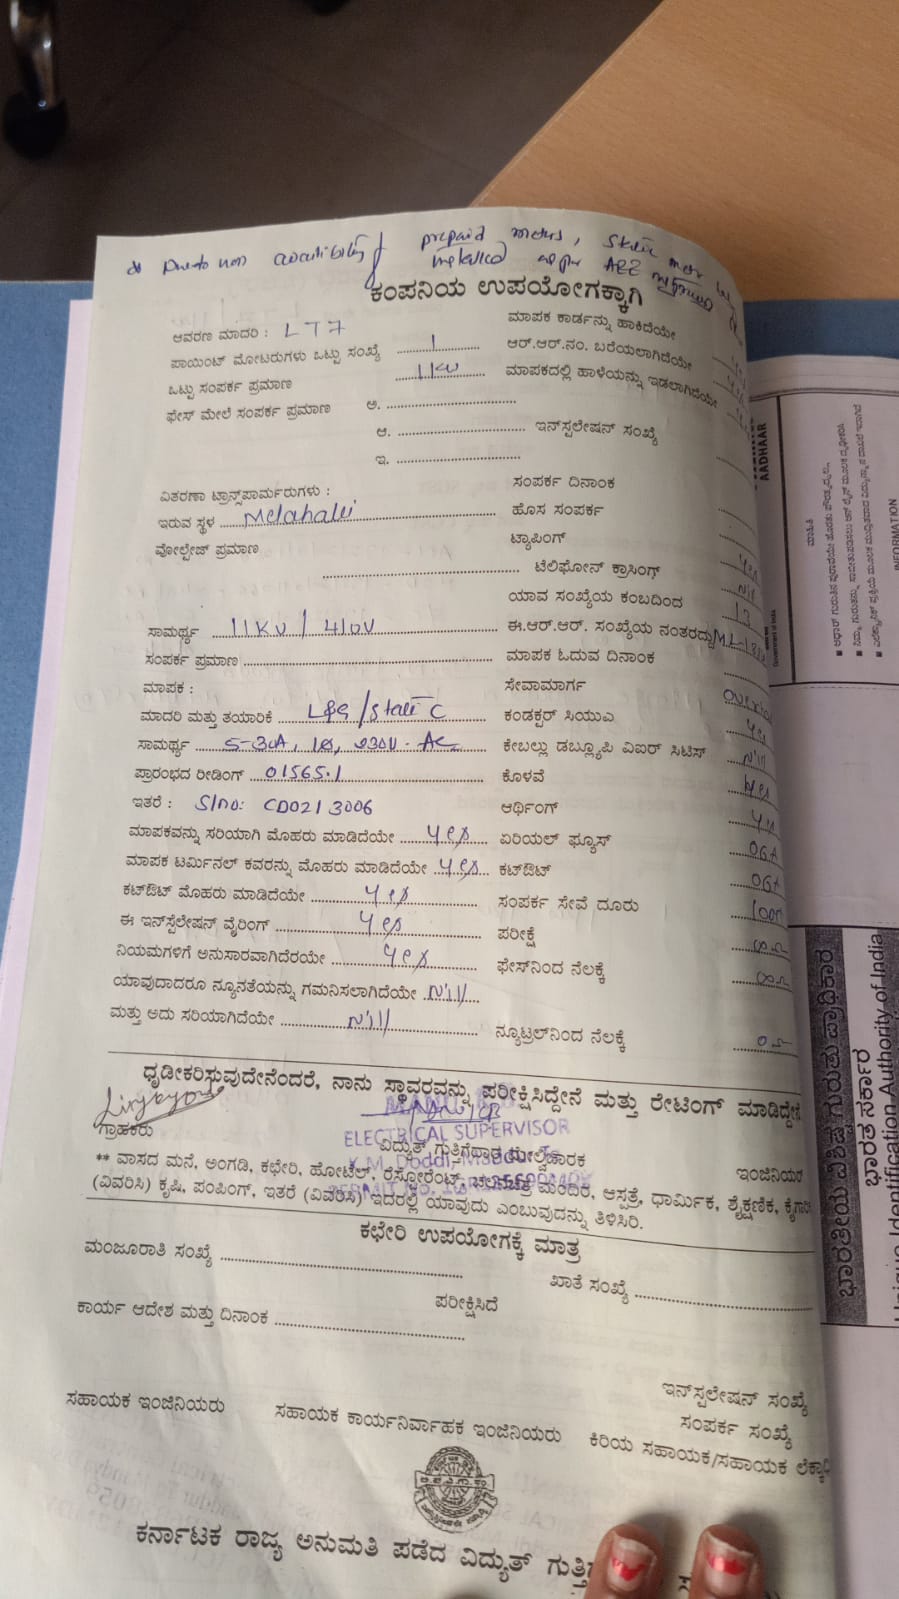 Due to non availibility of prepaid meters, Static meter
installed as per AEE
ಕಂಪನಿಯ ಉಪಯೋಗಕ್ಕಾಗಿ
ಆವರಣ ಮಾದರಿ : LT7
ಮಾಪಕ ಕಾರ್ಡನ್ನು ಹಾಕಿದೆಯೇ
ಪಾಯಿಂಟ್ ಮೋಟರುಗಳು ಒಟ್ಟು ಸಂಖ್ಯೆ 1
ಆರ್.ಆರ್.ನಂ. ಬರೆಯಲಾಗಿದೆಯೇ
ಒಟ್ಟು ಸಂಪರ್ಕ ಪ್ರಮಾಣ 1KW
ಮಾಪಕದಲ್ಲಿ ಹಾಳೆಯನ್ನು ಇಡಲಾಗಿದೆಯೇ
ಫೇಸ್ ಮೇಲೆ ಸಂಪರ್ಕ ಪ್ರಮಾಣ ಅ.
ಆ. ಇನ್‌ಸ್ಪಲೇಷನ್ ಸಂಖ್ಯೆ
ಇ.
ವಿತರಣಾ ಟ್ರಾನ್ಸ್‌ಪಾರ್ಮರುಗಳು : ಸಂಪರ್ಕ ದಿನಾಂಕ
ಇರುವ ಸ್ಥಳ Melahalli ಹೊಸ ಸಂಪರ್ಕ
ವೋಲ್ಟೇಜ್ ಪ್ರಮಾಣ ಟ್ಯಾಪಿಂಗ್ Yes
ಟೆಲಿಫೋನ್ ಕ್ರಾಸಿಂಗ್ Nil
ಯಾವ ಸಂಖ್ಯೆಯ ಕಂಬದಿಂದ 13
ಸಾಮರ್ಥ್ಯ 11KV / 410V ಈ.ಆರ್.ಆರ್. ಸಂಖ್ಯೆಯ ನಂತರದ್ದು
ಸಂಪರ್ಕ ಪ್ರಮಾಣ ಮಾಪಕ ಓದುವ ದಿನಾಂಕ
ಮಾಪಕ : ಸೇವಾಮಾರ್ಗ
ಮಾದರಿ ಮತ್ತು ತಯಾರಿಕೆ L&G / Static ಕಂಡಕ್ಟರ್ ಸಿಯುಎ Yes
ಸಾಮರ್ಥ್ಯ 5-30A, 1Ø, 230V. AC ಕೇಬಲ್ಲು ಡಬ್ಲ್ಯೂಪಿ ವಿಐರ್ ಸಿಟಿಸ್ Nill
ಪ್ರಾರಂಭದ ರೀಡಿಂಗ್ 01565.1 ಕೊಳವೆ Yes
ಇತರೆ : S/no: CD0213006 ಆರ್ಥಿಂಗ್ Yes
ಮಾಪಕವನ್ನು ಸರಿಯಾಗಿ ಮೊಹರು ಮಾಡಿದೆಯೇ Yes ಏರಿಯಲ್ ಫ್ಯೂಸ್ OGA
ಮಾಪಕ ಟರ್ಮಿನಲ್ ಕವರನ್ನು ಮೊಹರು ಮಾಡಿದೆಯೇ Yes ಕಟ್‌ಔಟ್ OGA
ಕಟ್‌ಔಟ್ ಮೊಹರು ಮಾಡಿದೆಯೇ Yes ಸಂಪರ್ಕ ಸೇವೆ ದೂರು
ಈ ಇನ್‌ಸ್ಪೆಲೇಷನ್ ವೈರಿಂಗ್ Yes ಪರೀಕ್ಷೆ ∞Ω
ನಿಯಮಗಳಿಗೆ ಅನುಸಾರವಾಗಿದೆರಯೇ Yes ಫೇಸ್‌ನಿಂದ ನೆಲಕ್ಕೆ ∞Ω
ಯಾವುದಾದರೂ ನ್ಯೂನತೆಯನ್ನು ಗಮನಿಸಲಾಗಿದೆಯೇ Nill
ಮತ್ತು ಅದು ಸರಿಯಾಗಿದೆಯೇ Nill ನ್ಯೂಟ್ರಲ್‌ನಿಂದ ನೆಲಕ್ಕೆ 0Ω
ಧೃಡೀಕರಿಸ್ತುವುದೇನೆಂದರೆ, ನಾನು ಸ್ಥಾವರವನ್ನು ಪರೀಕ್ಷಿಸಿದ್ದೇನೆ ಮತ್ತು ರೇಟಿಂಗ್ ಮಾಡಿದ್ದೇನೆ
ELECTRICAL SUPERVISOR
K.M. Doddi, Maddur
ಗ್ರಾಹಕರು ವಿದ್ಯುತ್ ಗುತ್ತಿಗೆದಾರ ಮೇಲ್ವಿಚಾರಕ ಇಂಜಿನಿಯರ
** ವಾಸದ ಮನೆ, ಅಂಗಡಿ, ಕಛೇರಿ, ಹೋಟೆಲ್, ರೆಸ್ಟೋರೆಂಟ್, ಚಲನಚಿತ್ರ ಮಂದಿರ, ಆಸ್ಪತ್ರೆ, ಧಾರ್ಮಿಕ, ಶೈಕ್ಷಣಿಕ, ಕೈಗಾರಿ
(ವಿವರಿಸಿ) ಕೃಷಿ, ಪಂಪಿಂಗ್, ಇತರೆ (ವಿವರಿಸಿ) ಇದರಲ್ಲಿ ಯಾವುದು ಎಂಬುವುದನ್ನು ತಿಳಿಸಿರಿ.
ಕಛೇರಿ ಉಪಯೋಗಕ್ಕೆ ಮಾತ್ರ
ಮಂಜೂರಾತಿ ಸಂಖ್ಯೆ ಖಾತೆ ಸಂಖ್ಯೆ
ಪರೀಕ್ಷಿಸಿದೆ
ಕಾರ್ಯ ಆದೇಶ ಮತ್ತು ದಿನಾಂಕ
ಇನ್‌ಸ್ಪಲೇಷನ್ ಸಂಖ್ಯೆ
ಸಂಪರ್ಕ ಸಂಖ್ಯೆ
ಸಹಾಯಕ ಇಂಜಿನಿಯರು ಸಹಾಯಕ ಕಾರ್ಯನಿರ್ವಾಹಕ ಇಂಜಿನಿಯರು ಕಿರಿಯ ಸಹಾಯಕ/ಸಹಾಯಕ ಲೆಕ್ಕಾಧಿ
ಕರ್ನಾಟಕ ರಾಜ್ಯ ಅನುಮತಿ ಪಡೆದ ವಿದ್ಯುತ್
AADHAAR
ಮಾಹಿತಿ
INFORMATION
Government of India
ಭಾರತೀಯ ವಿಶಿಷ್ಟ ಗುರುತು ಪ್ರಾಧಿಕಾರ
ಭಾರತ ಸರ್ಕಾರ
Unique Identification Authority of India